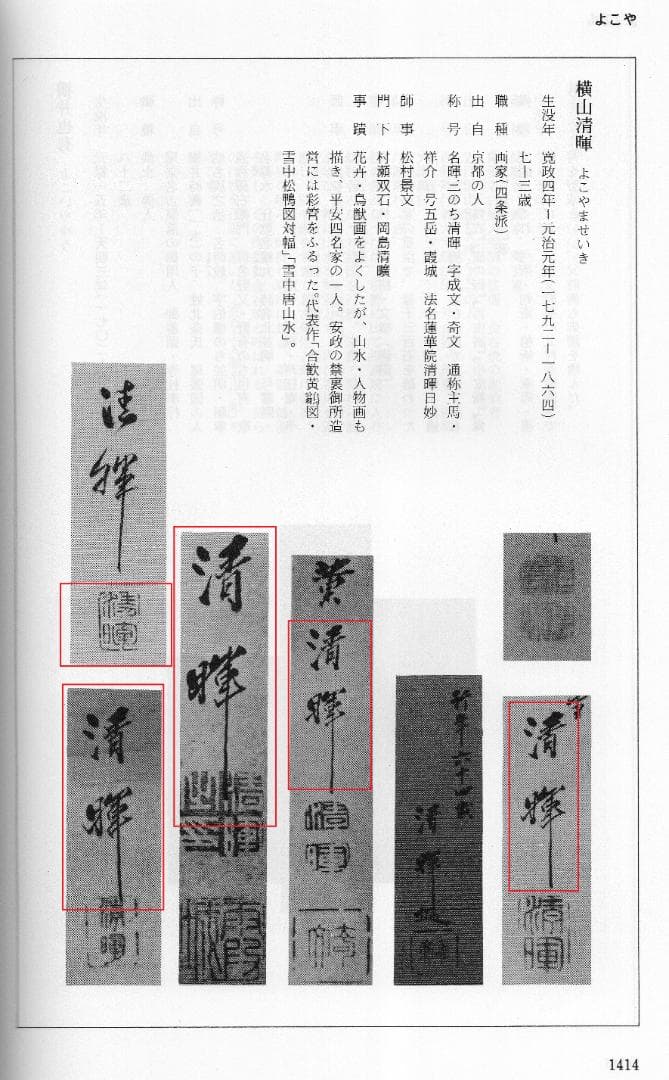 よこや
横山清暉 よこやませいき
生没年 寛政四年ー元治元年(一七九二ー一八六四)
七十三歳
職種 画家(四条派)
出自 京都の人
称号 名暉三のち清暉 字成文・奇文 通称主馬・
祥介 号五岳・霞城 法名蓮華院清暉日妙
師事 松村景文
門下 村瀬双石・岡島清曠
事蹟 花卉・鳥獣画をよくしたが、山水・人物画も
描き、平安四名家の一人。安政の禁裏御所造
営には彩管をふるった。代表作「合歓黄鸝図・
雪中松鴨図対幅」「雪中唐山水」。
清暉
清暉
行年六十四歳
清暉
清暉
清暉
清暉
清暉
清暉
清暉
清暉
1414